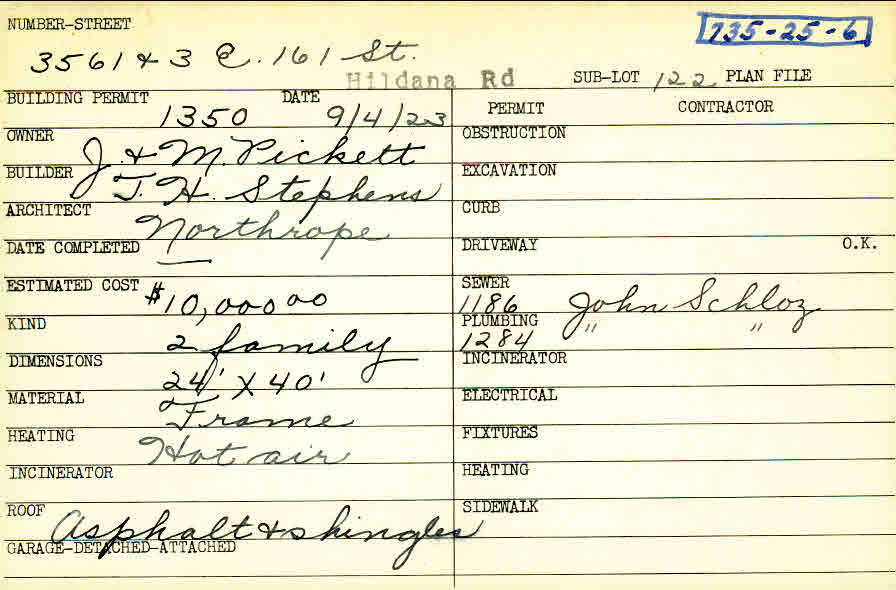 NUMBER-STREET 735-25-6
3561 & 3 E. 161 St.
Hildana Rd SUB-LOT 122 PLAN FILE
BUILDING PERMIT 1350 DATE 9/4/23
PERMIT CONTRACTOR
OWNER J. & M. Pickett
OBSTRUCTION
BUILDER J. H. Stephens
EXCAVATION
ARCHITECT Northrope
CURB
DATE COMPLETED —
DRIVEWAY O.K.
ESTIMATED COST $10,000 00
SEWER 1186 John Schloz
KIND 2 family
PLUMBING 1284 " "
DIMENSIONS 24' X 40'
INCINERATOR
MATERIAL Frame
ELECTRICAL
HEATING Hot air
FIXTURES
INCINERATOR
HEATING
ROOF Asphalt & shingles
SIDEWALK
GARAGE-DETACHED-ATTACHED